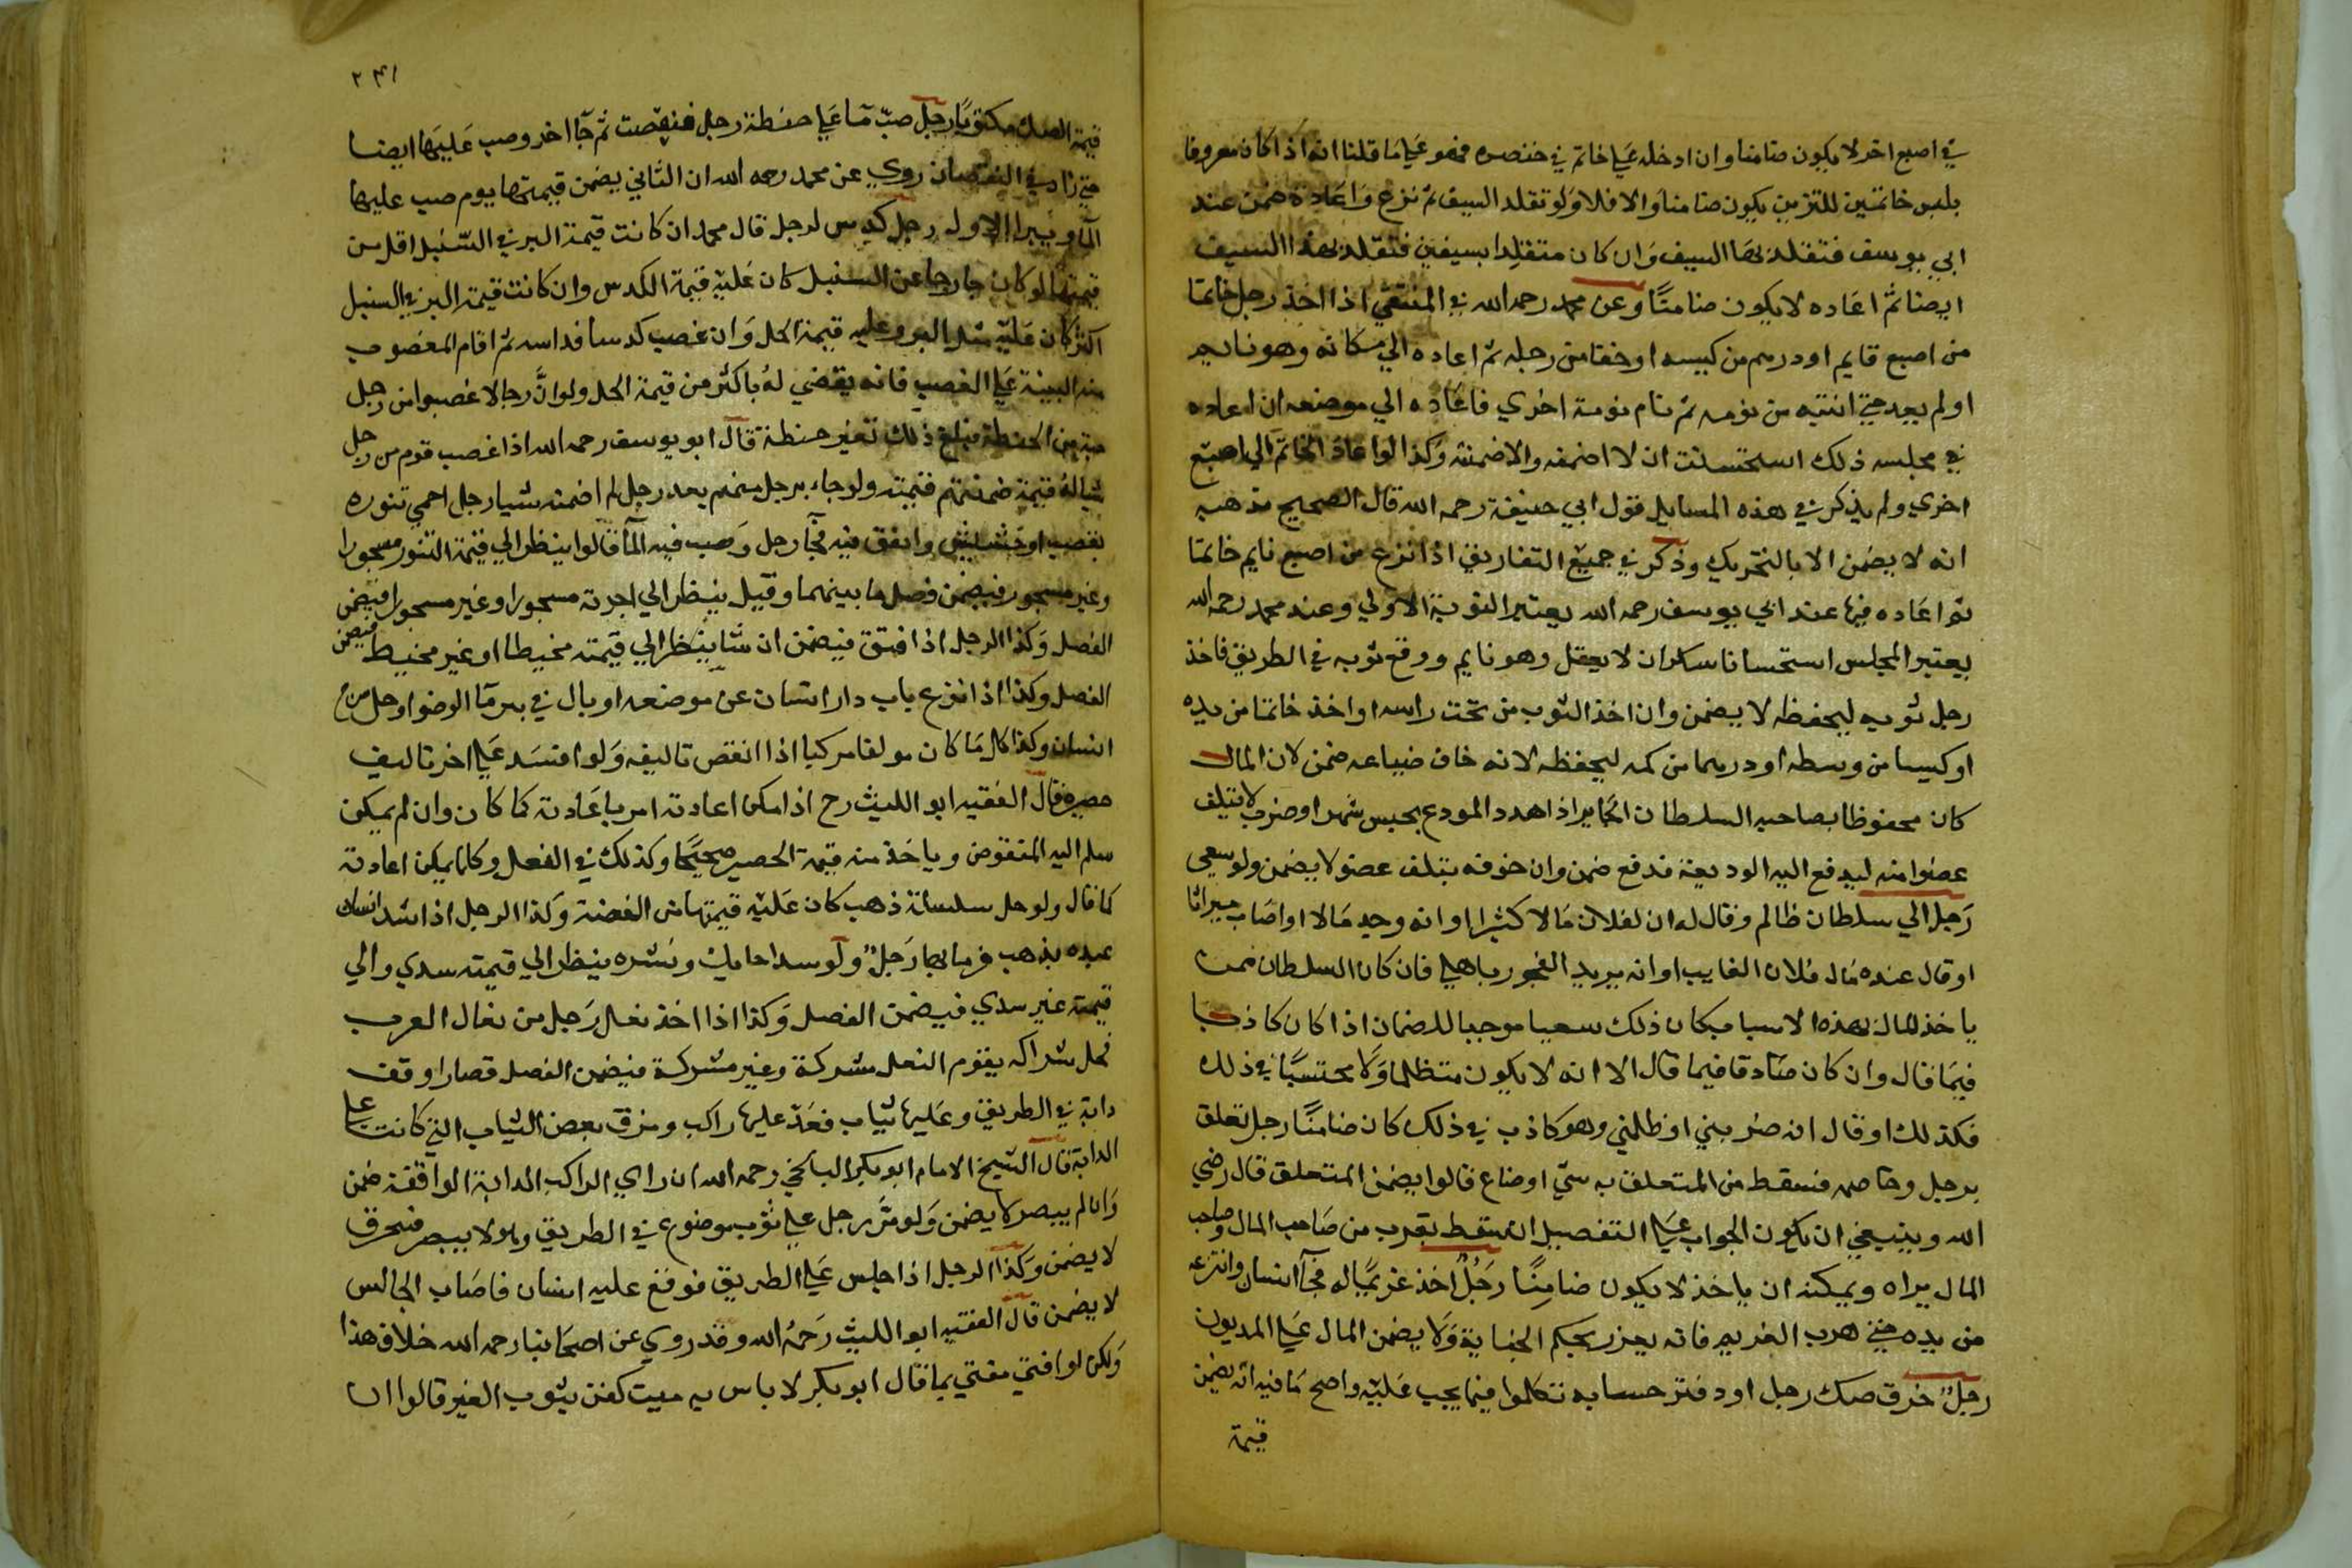 في اصبع اخر لا يكون ضامنا وان ادخله علي خاتم في خنصره فهو علي ما قلنا انه اذا كان معروفا
بلبس خاتمين للتزين يكون ضامنا والا فلا ولو تقلد السيف ثم نزع واعاده ضمن عند
ابي يوسف فتقلد بهذا السيف وان كان متقلدا بسيفين فتقلد بهذا السيف
ايضا ثم اعاده لا يكون ضامنا وعن محمد رحمه الله في المنتقي اذا اخذ رجل خاتما
من اصبع نايم او درهم من كيسه او خفا من رجله ثم اعاده الي مكانه وهو نايم
او لم يعد حتي انتبه من نومه ثم نام نومة اخري فاعاده الي موضعه ان اعاده
في مجلسه ذلك استحسنت ان لا اضمنه والا ضمنته وكذا لو اعاد الخاتم الي اصبع
اخري ولم يذكر في هذه المسايل قول ابي حنيفة رحمه الله قال الصحيح مذهبه
انه لا يضمن الا بالتحريك وذكر في جميع التفاريق اذا نزع من اصبع نايم خاتما
ثم اعاده فيها عند ابي يوسف رحمه الله يعتبر النومة الاولي وعند محمد رحمه الله
يعتبر المجلس استحسانا سكران لا يعقل وهو نايم ووقع ثوبه في الطريق فاخذ
رجل ثوبه ليحفظه لا يضمن وان اخذ الثوب من تحت راسه او اخذ خاتما من يده
او كيسا من وسطه او درهما من كمه ليحفظه لانه خاف ضياعه ضمن لان المال
كان محفوظا بصاحبه السلطان الجاير اذا هدد المودع بحبس شهر او ضرب لا يتلف
عضوا منه ليدفع اليه الوديعة فدفع ضمن وان خوفه بتلف عضو لا يضمن ولو سعي
رجل الي سلطان ظالم وقال له ان لفلان مالا كثيرا او انه وجد مالا او اصاب ميراثا
او قال عنده مال فلان الغايب او انه يريد الفجور باهلي فان كان السلطان ممن
ياخذ المال بهذه الاسباب كان ذلك سعيا موجبا للضمان اذا كان كاذبا
فيما قال وان كان صادقا فيما قال الا انه لا يكون متظلما ولا محتسبا في ذلك
فكذلك او قال انه ضربني او ظلمني وهو كاذب في ذلك كان ضامنا رجل تعلق
برجل وخاصمه فسقط من المتعلق به شي او ضاع قالوا يضمن المتعلق قال رضي
الله وينبغي ان يكون الجواب علي التفصيل ان سقط بقرب من صاحب المال وصاحب
المال يراه ويمكنه ان ياخذ لا يكون ضامنا رجل اخذ غريما له فجآ انسان وانتزعه
من يده حتي هرب الغريم فانه يعزر بحكم الجناية ولا يضمن المال علي المديون
رجل خرق صك رجل او دفتر حسابه تكلموا فيما يجب عليه واصح ما فيه انه يضمن
قيمة
٢٤١
قيمة الصك مكتوبا رجل صب مآ علي حنطة رجل فنقصت ثم جآ اخر وصب عليها ايضا
حتي زاد في النقصان روي عن محمد رحمه الله ان الثاني يضمن قيمتها يوم صب عليها
المآ ويبرا الاول رجل كدس لرجل قال محمد ان كانت قيمة البر في السنبل اقل من
قيمتها لو كان خارجا عن السنبل كان عليه قيمة الكدس وان كانت قيمة البر في السنبل
اكثر كان عليه مثل البر وعليه قيمة الحل وان غصب كدسا فداسه ثم اقام المغصوب
منه البينة علي الغصب فانه يقضي له باكثر من قيمة الحل ولو ان رجالا غصبوا من رجل
حبة من الحنطة فبلغ ذلك قفيز حنطة قال ابو يوسف رحمه الله اذا غصب قوم من رجل
شيا له قيمة ضمنتهم قيمته ولو جاء برجل منهم بعد رجل لم اضمنه شيا رجل احمي تنوره
بقصب او حشيش وانفق فيه فجآ رجل وصب فيه المآ قالوا ينظر الي قيمة التنور مسجورا
وغير مسجور فيضمن فضل ما بينهما وقيل ينظر الي اجرته مسجورا وغير مسجور فيضمن
الفضل وكذا الرجل اذا فتق فيضمن ان شا ينظر الي قيمته مخيطا او غير مخيط فيضمن
الفضل وكذا اذا نزع باب دار انسان عن موضعه او بال في بير مآ الوضوا وحل سرج
انسان وكذا كل ما كان مولفا مركبا اذا انقض تاليفه ولو افسد علي اخر تاليف
حصير قال الفقيه ابو الليث رح اذا امكن اعادته امر باعادته كما كان وان لم يمكن
سلم اليه المنقوض وياخذ منه قيمة الحصير صحيحا وكذلك في الفعل وكلما يمكن اعادته
كما قال ولو حل سلسلة ذهب كان عليه قيمتها من الفضة وكذا الرجل اذا شد اسنان
عبده بذهب فرمي بها رجل ولو سدا حايك ونشره ينظر الي قيمته سدي والي
قيمته غير سدي فيضمن الفضل وكذا اذا اخذ نعل رجل من نعال العرب
فحل شراكه يقوم النعل مشركة وغير مشركة فيضمن الفضل قصار اوقف
دابة في الطريق وعليها ثياب فعد عليها راكب ومزق بعض الثياب التي كانت علي
الدابة قال الشيخ الامام ابو بكر البلخي رحمه الله ان راي الراكب الدابة الواقفة ضمن
وان لم يبصر لا يضمن ولو مر رجل علي ثوب موضوع في الطريق وهو لا يبصر فتحرق
لا يضمن وكذا الرجل اذا جلس علي الطريق فوقع عليه انسان فاصاب الجالس
لا يضمن قال الفقيه ابو الليث رحمه الله وقد روي عن اصحابنا رحمه الله خلاف هذا
ولكن لو افتي مفتي بما قال ابو بكر لا باس به ميت كفن بثوب الغير قالوا ان